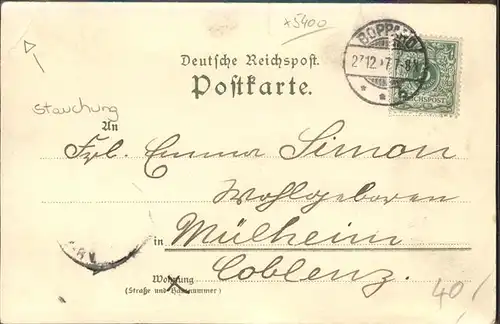 x5400
BOPPARD
27.12.97.7-8N
REICHSPOST
Deutsche Reichspost.
Postkarte.
Stauchung
An
Frl. Emma Simon
Wohlgeboren
in Mülheim
Coblenz.
Wohnung
(Straße und Hausnummer)
40/